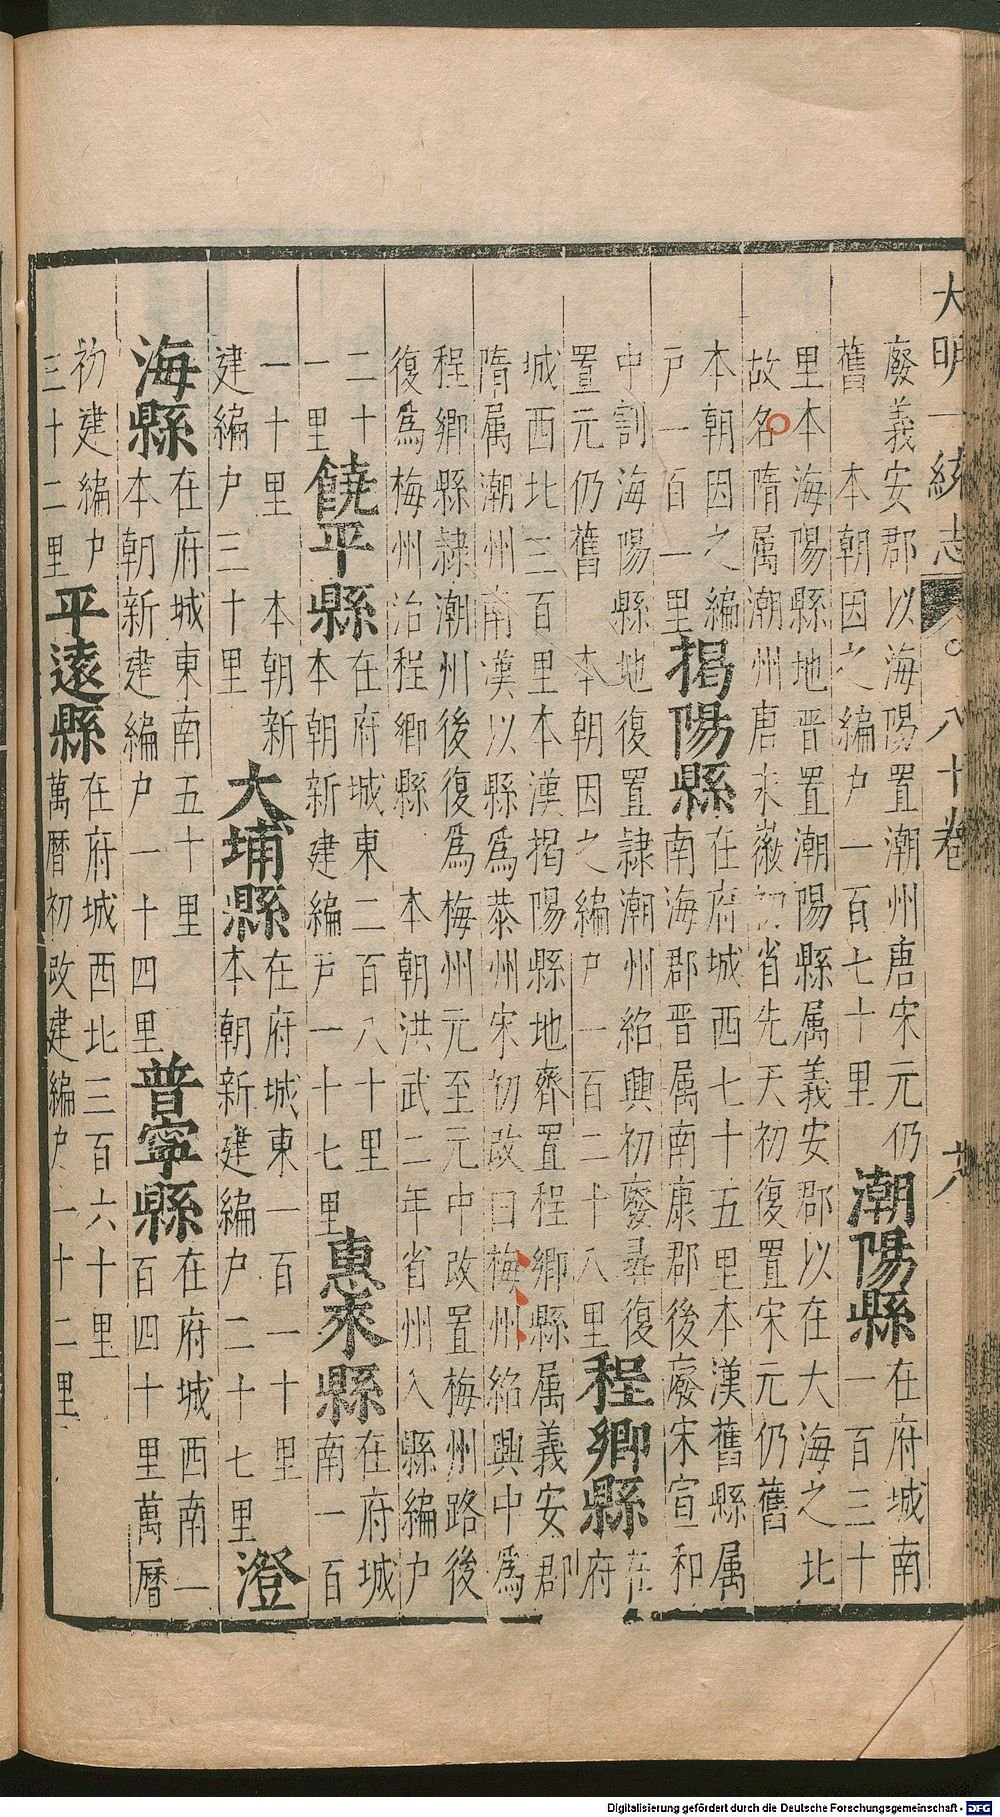 大明一統志 八十卷 廿八
廢義安郡以海陽置潮州唐宋元仍
舊 本朝因之編户一百七十里
潮陽縣
在府城南
一百三十
里本海陽縣地晉置潮陽縣属義安郡以在大海之北
故名隋属潮州唐永徽初省先天初復置宋元仍舊
本朝因之編
户一百一里
揭陽縣
在府城西七十五里本漢舊縣属
南海郡晋属南康郡後廢宋宣和
中割海陽縣地復置隷潮州紹興初廢尋復
置元仍舊 本朝因之編户一百二十八里
程鄉縣
在
府
城西北三百里本漢揭陽縣地齊置程鄉縣属義安郡
隋属潮州南漢以縣為恭州宋初改曰梅州紹興中為
程鄉縣隷潮州後復為梅州元至元中改置梅州路後
復為梅州治程鄉縣 本朝洪武二年省州入縣編户
二十
一里
饒平縣
在府城東二百八十里
本朝新建編户一十七里
惠來縣
在府城
南一百
一十里 本朝新
建編户三十里
大埔縣
在府城東一百一十里
本朝新建編户二十七里
澄
海縣
在府城東南五十里
本朝新建編户一十四里
普寧縣
在府城西南一
百四十里萬曆
初建編户
三十二里
平遠縣
在府城西北三百六十里
萬曆初改建編户一十二里
Digitalisierung gefördert durch die Deutsche Forschungsgemeinschaft - DFG